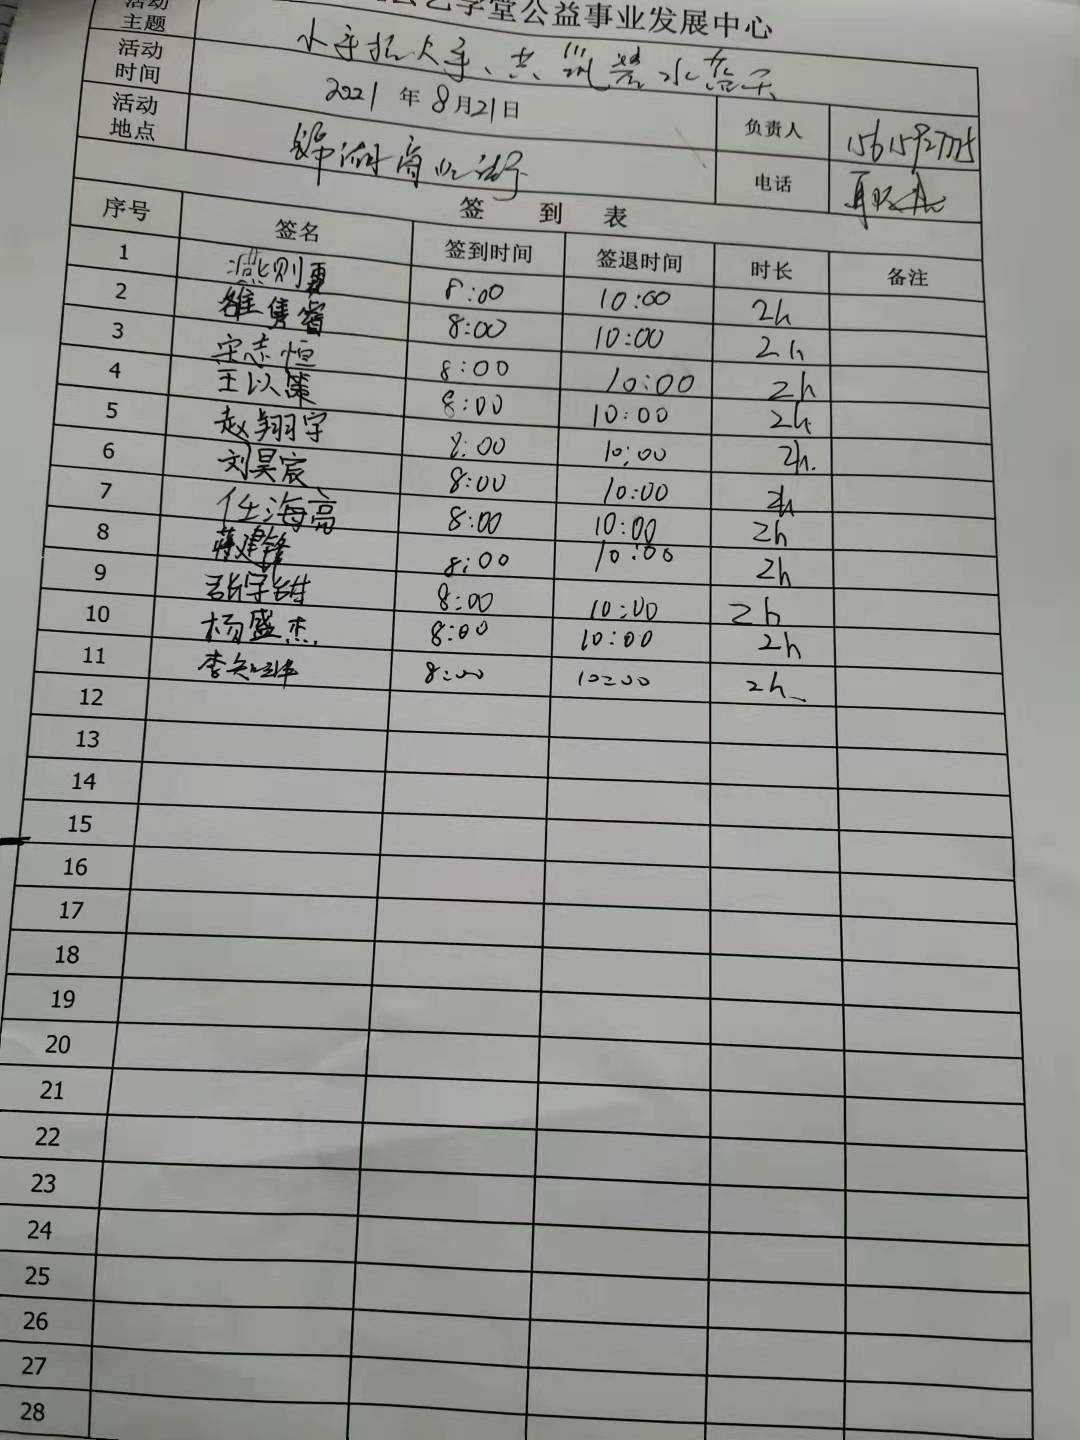 艺学堂公益事业发展中心
活动主题
活动时间 2021年8月21日 负责人
活动地点 商业街 电话
签到表
序号 签名 签到时间 签退时间 时长 备注
1 8:00 10:00 2h
2 8:00 10:00 2h
3 宋志恒 8:00 10:00 2h
4 王以策 8:00 10:00 2h
5 赵翔宇 8:00 10:00 2h.
6 刘昊宸 8:00 10:00 2h
7 任海亮 8:00 10:00 2h
8 蒋建锋 8:00 10:00 2h
9 8:00 10:00 2h
10 杨盛杰 8:00 10:00 2h
11 8:00 10:00 2h
12
13
14
15
16
17
18
19
20
21
22
23
24
25
26
27
28